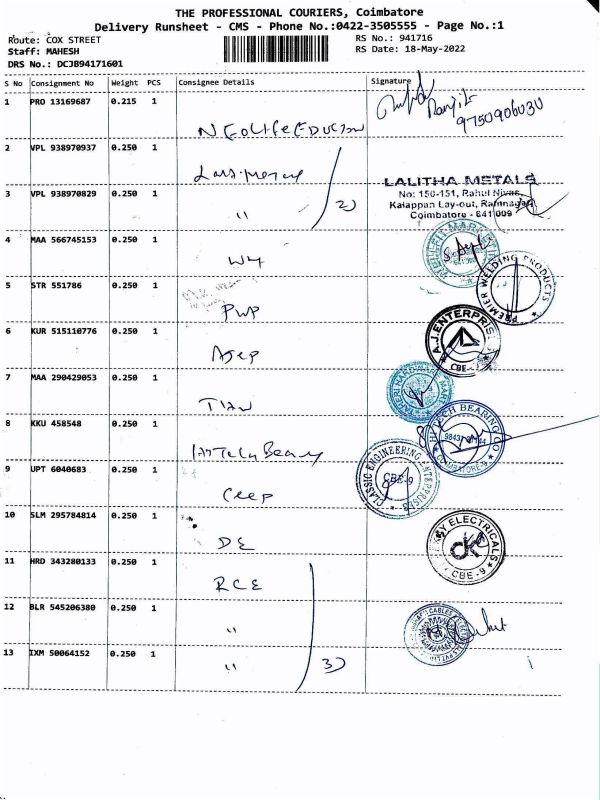 THE PROFESSIONAL COURIERS, Coimbatore
Delivery Runsheet - CMS - Phone No.:0422-3505555 - Page No.:1
Route: COX STREET
Staff: MAHESH
DRS No.: DCJB94171601
RS No.: 941716
RS Date: 18-May-2022
S No Consignment No Weight PCS Consignee Details Signature
1 PRO 13169687 0.215 1
9750906030
NEOLIFE EDUCTION
2 VPL 938970937 0.250 1
LALITHA METALS
No: 150-151, Rahul Nivas,
Kalappan Lay-out, Ramnagar
Coimbatore - 641 009
3 VPL 938970829 0.250 1
" 2)
4 MAA 566745153 0.250 1
5 STR 551786 0.250 1
PREMIER WELDING PRODUCTS
PWP
6 KUR 515110776 0.250 1
A.J. ENTERPRISES
CBE-9
AJEP
7 MAA 290429053 0.250 1
HARDWARE MART
8 KKU 458548 0.250 1
HI-TECH BEARING CO
COIMBATORE-9
9 UPT 6040683 0.250 1
CLASSIC ENGINEERING ENTERPRISES
CBE-9
CEEP
10 SLM 295784814 0.250 1
ELECTRICALS
CBE-9
DE
11 HRD 343280133 0.250 1
RCE
12 BLR 545206380 0.250 1
"
13 IXM 50064152 0.250 1
" 3)